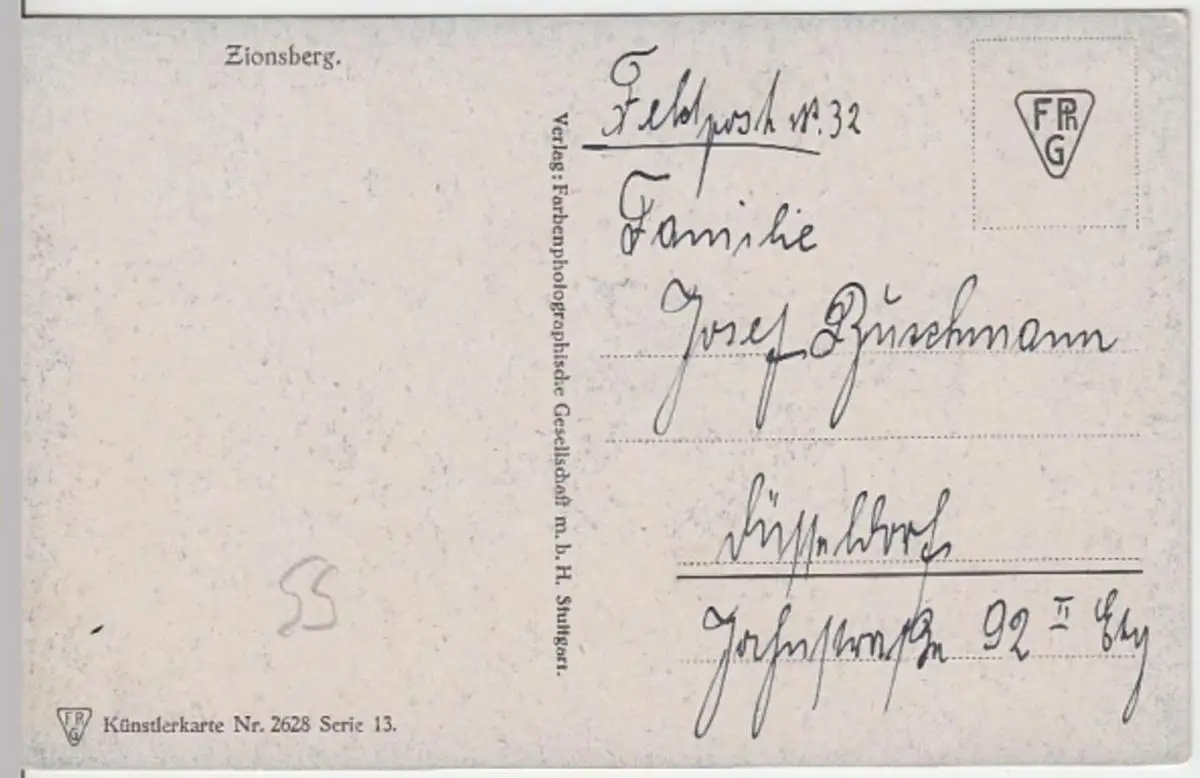 Zionsberg.
Feldpost N. 32
Familie
Josef Buschmann
Düsseldorf
Jahnstraße 92 II Etg
Verlag: Farbenphotographische Gesellschaft m. b. H. Stuttgart.
F Ph G
55
F Ph G Künstlerkarte Nr. 2628 Serie 13.